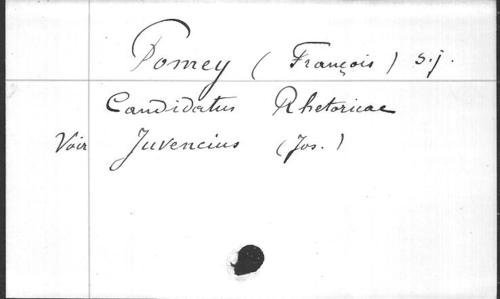 Pomey (François) s.j.
Candidatus Rhetoricae
Voir Juvencius (Jos.)